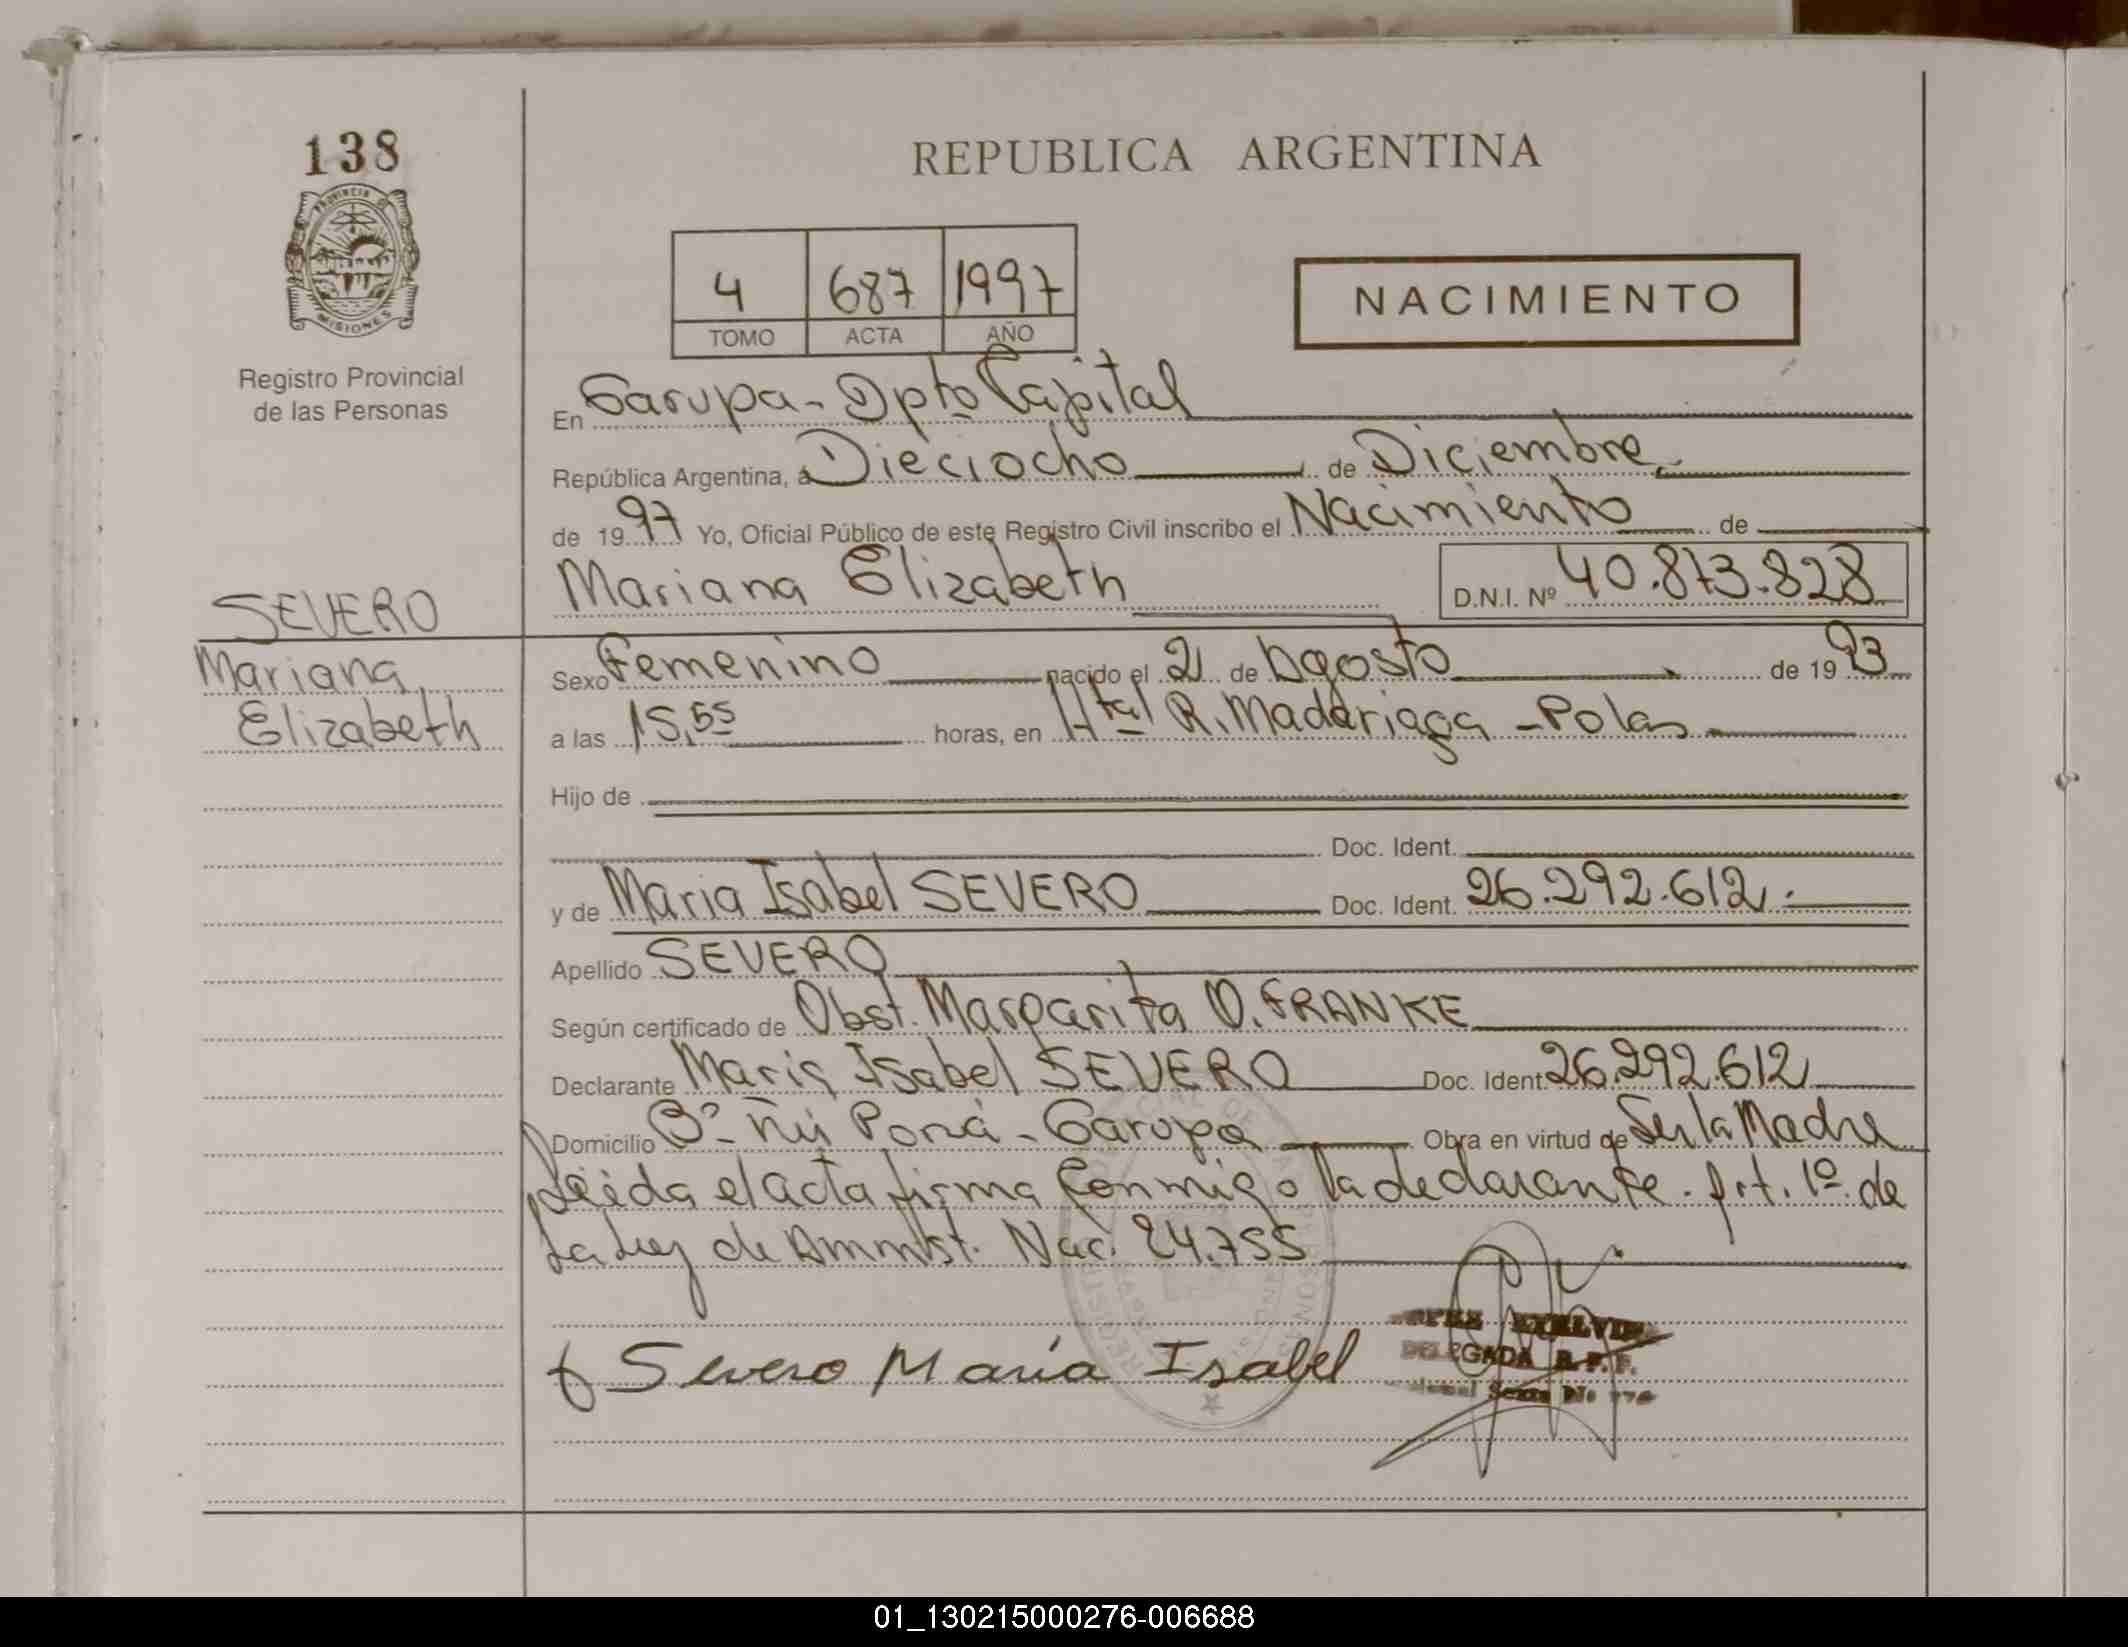 138
PROVINCIA DE
MISIONES
Registro Provincial
de las Personas
SEVERO
Mariana
Elizabeth
REPUBLICA ARGENTINA
4 687 1997
TOMO ACTA AÑO
NACIMIENTO
En Garupa - Dpto Capital
República Argentina, a Dieciocho de Diciembre
de 1997 Yo, Oficial Público de este Registro Civil inscribo el Nacimiento de
Mariana Elizabeth D.N.I. Nº 40.873.828
Sexo Femenino nacido el 21 de Agosto de 1993
a las 15,55 horas, en Htal R. Madariaga - Pdas
Hijo de
Doc. Ident.
y de Maria Isabel SEVERO Doc. Ident. 26.292.612
Apellido SEVERO
Según certificado de Obst. Margarita O. FRANKE
Declarante Maria Isabel SEVERO Doc. Ident. 26.292.612
Domicilio Bº Ñú Porá - Garupa Obra en virtud de Ser la Madre
Leida el acta firma Conmigo la declarante. Art. 1º de
La Ley de Amnist. Nac. 24.755
Severo María Isabel
DELEGADA R. P. P.
01_130215000276-006688